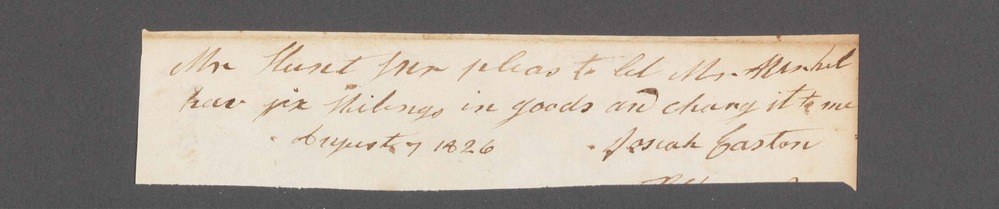 Mr Hunt Sur pleas to let Mr
hav six Shilings in goods and charg it to me
August 7 1826 Josiah Easton